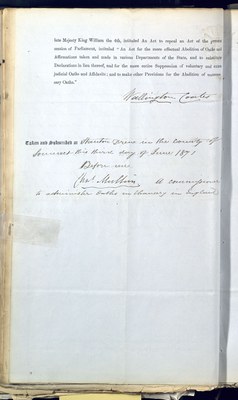 late Majesty King William the 4th, intituled An Act to repeal an Act of the present
session of Parliament, intituled "An Act for the more effectual Abolition of Oaths and
Affirmations taken and made in various Departments of the State, and to substitute
Declarations in lieu thereof, and for the more entire Suppression of voluntary and extra-
judicial Oaths and Affidavits; and to make other Provisions for the Abolition of unneces-
sary Oaths."
Wallington Coates
Taken and Subscribed at in the County of
Somerset this third day of June 1871
Before me
Chas Mullins A commissioner
to administer Oaths in Chancery in England